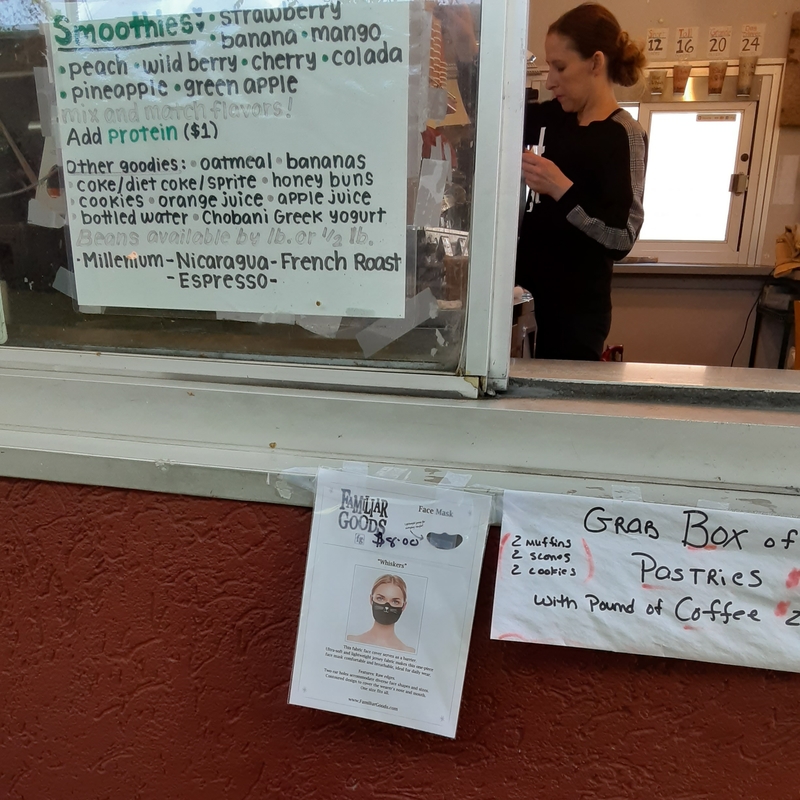 Smoothies: • strawberry
• banana • mango
• peach • wild berry • cherry • colada
• pineapple • green apple
mix and match flavors!
Add protein ($1)
Other goodies: • oatmeal • bananas
• coke/diet coke/sprite • honey buns
• cookies • orange juice • apple juice
• bottled water • Chobani Greek yogurt
Beans available by lb. or 1/2 lb.
•Millenium-Nicaragua-French Roast
-Espresso-
12
Tall
16
20
24
FAMILIAR
GOODS
Face Mask
$8.00
"Whiskers"
This fabric face cover serves as a barrier.
www.FamiliarGoods.com
GRAB BOX of
2 Muffins
2 scones
2 cookies
PASTRIES
With Pound of Coffee